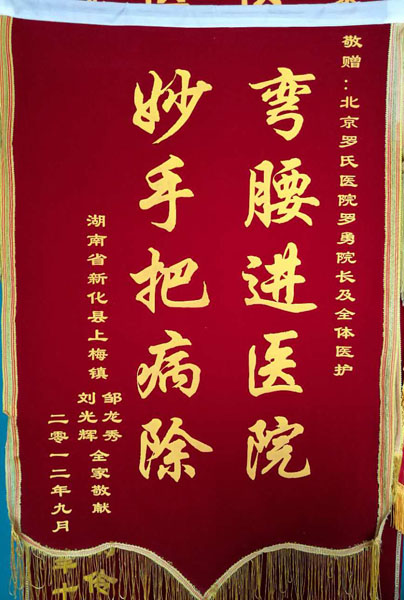 敬赠：北京罗氏医院罗勇院长及全体医护
弯腰进医院
妙手把病除
湖南省新化县上梅镇
邹龙秀
刘光辉 全家敬献
二零一二年九月